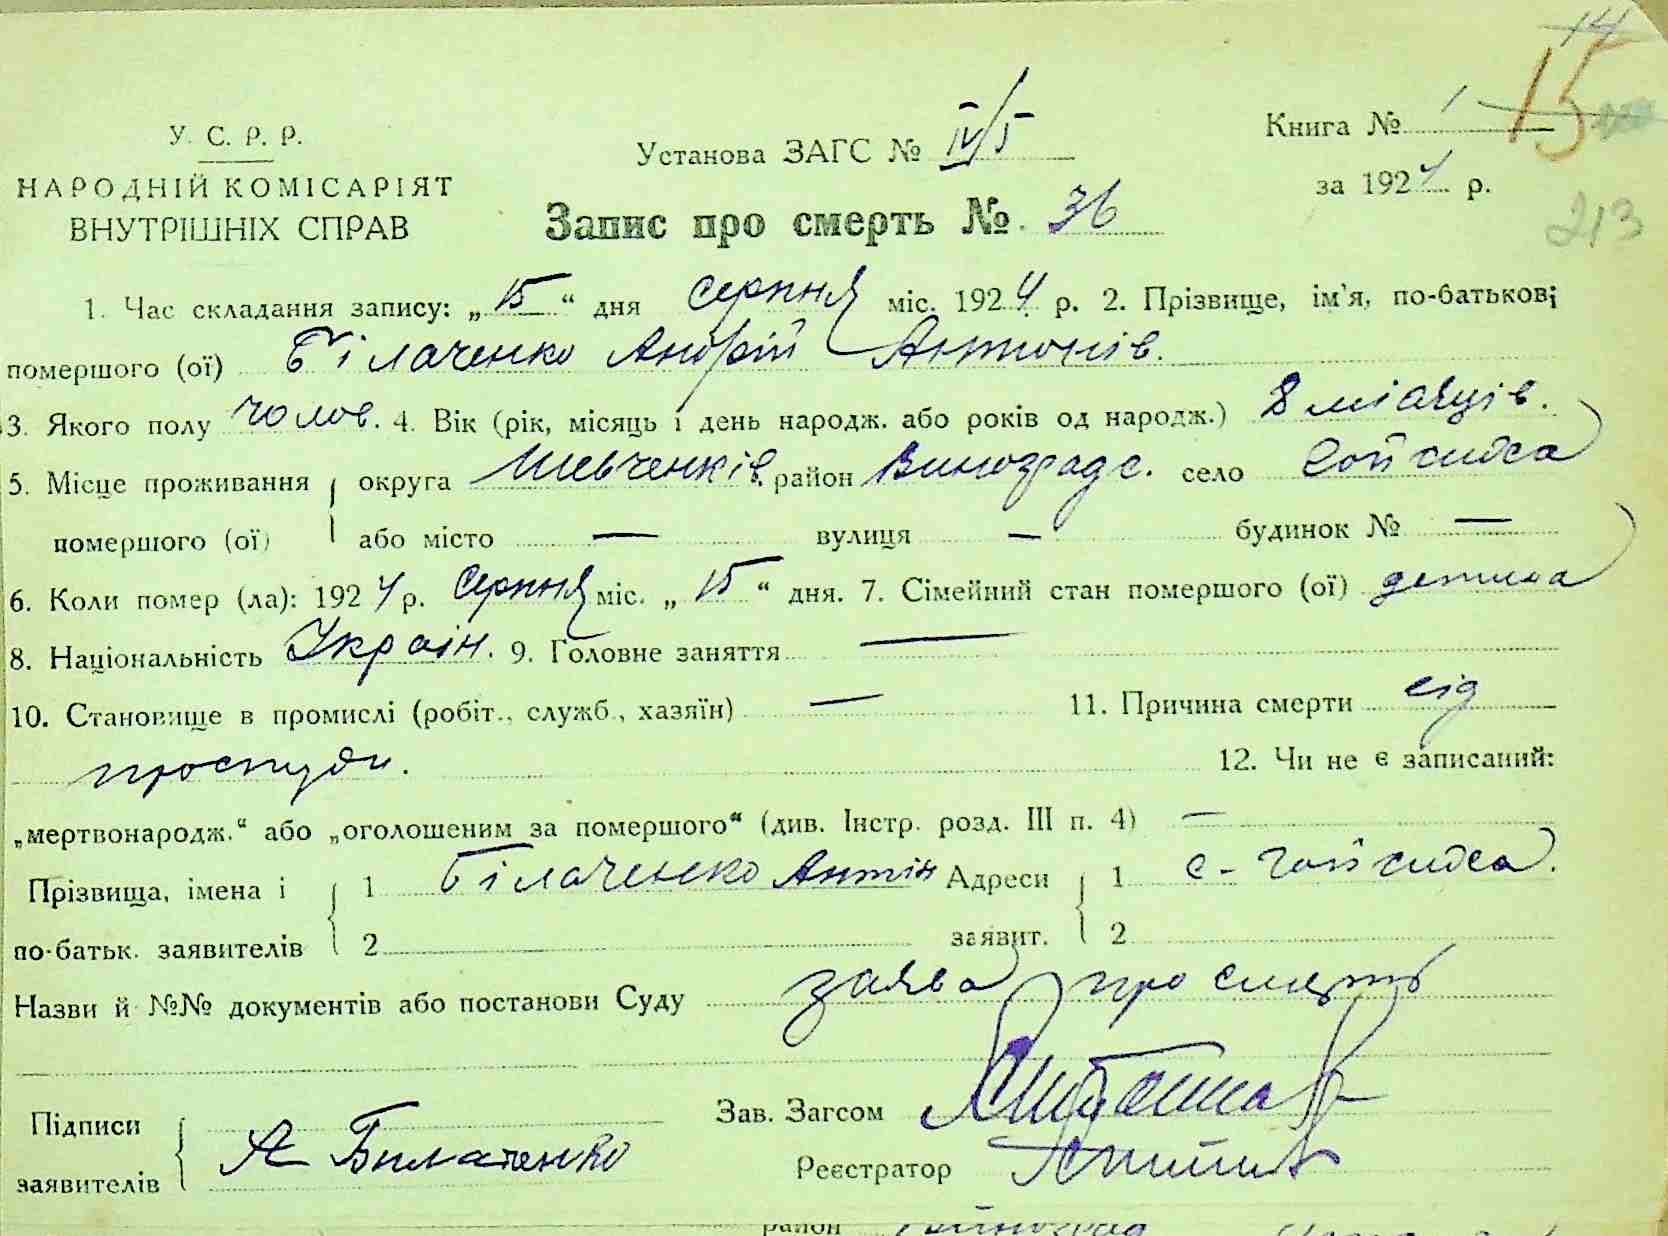 14
15
У. С. Р. Р.
НАРОДНІЙ КОМІСАРІЯТ
ВНУТРІШНІХ СПРАВ
Установа ЗАГС № IV/5
Книга № 1
за 1924 р.
213
Запис про смерть №. 36
1. Час складання запису: „15“ дня серпня міс. 1924 р. 2. Прізвище, ім'я, по-батькові
помершого (ої) Білаченко Андрій Антонів.
3. Якого полу чолов. 4. Вік (рік, місяць і день народж. або років од народж.) 8 місяців.
5. Місце проживання округа Шевченків. район Виноградс. село
помершого (ої) або місто — вулиця — будинок № —
6. Коли помер (ла): 1924 р. серпня міс. „15“ дня. 7. Сімейний стан помершого (ої) детина
8. Національність Україн. 9. Головне заняття —
10. Становище в промислі (робіт., служб., хазяїн) — 11. Причина смерти від
простуди. 12. Чи не є записаний:
„мертвонародж.“ або „оголошеним за помершого“ (див. Інстр. розд. III п. 4) —
Прізвища, імена і 1 Білаченко Антін Адреси 1 с-
по-батьк. заявителів 2 заявит. 2
Назви й №№ документів або постанови Суду заява про смерть
Підписи Зав. Загсом
заявителів А Билаченко Реєстратор
район